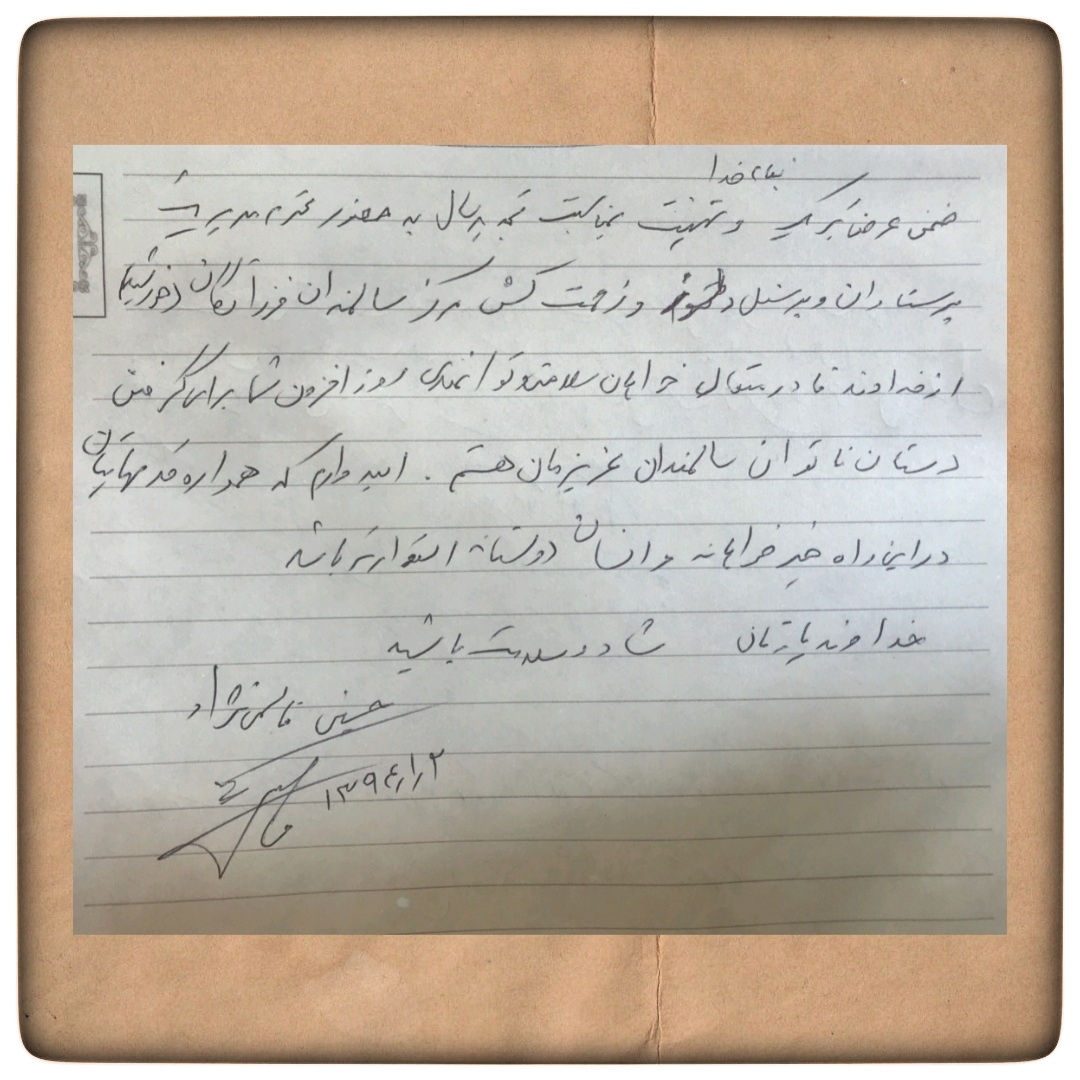 بنام خدا
ضمن عرض تبریک و تهنیت بمناسبت تجدید سال به حضور محترم مدیریت
پرستاران و پرسنل و زحمت کش مرکز سالمندان فرزانگان (خورشید)
از خداوند قادر متعال خواهان سلامتی و توانمندی روز افزون شما برای گرفتن
دستان ناتوان سالمندان عزیزمان هستم . امیدوارم که همواره قدمهایتان
در این راه خیر خواهانه و انسان دوستانه استوارتر باشد
خداوند یارتان شاد و سلامت باشید
حسین قاسمی نژاد
۱۳۹۶/۱/۲